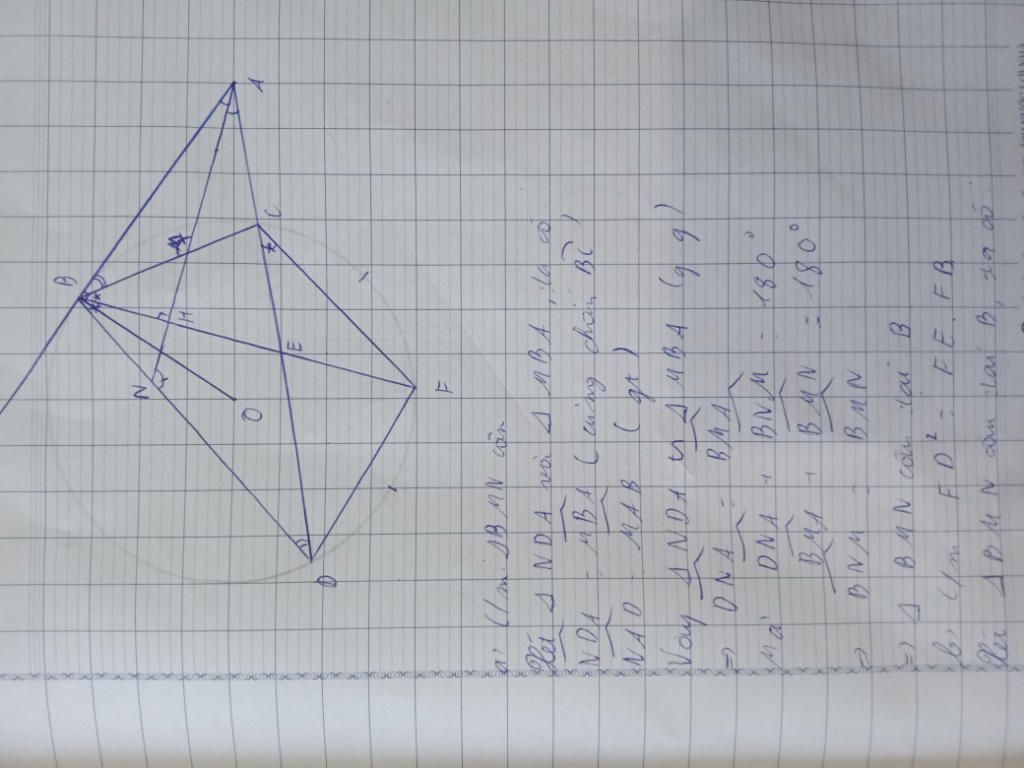 A
B
C
M
N
H
E
O
F
D
a, C/m ΔBMN cân
Xét Δ NDA và Δ MBA, ta có
NDA = MBA (cùng chắn BC)
NAD = MAB (gt)
Vậy Δ NDA ∽ Δ MBA (g.g)
=> DNA = BMA
Mà DNA + BNM = 180°
BMA + BMN = 180°
=> BNM = BMN
=> Δ BMN cân tại B
b, C/m FD² = FE.FB
Xét ΔBMN cân tại B, ta có